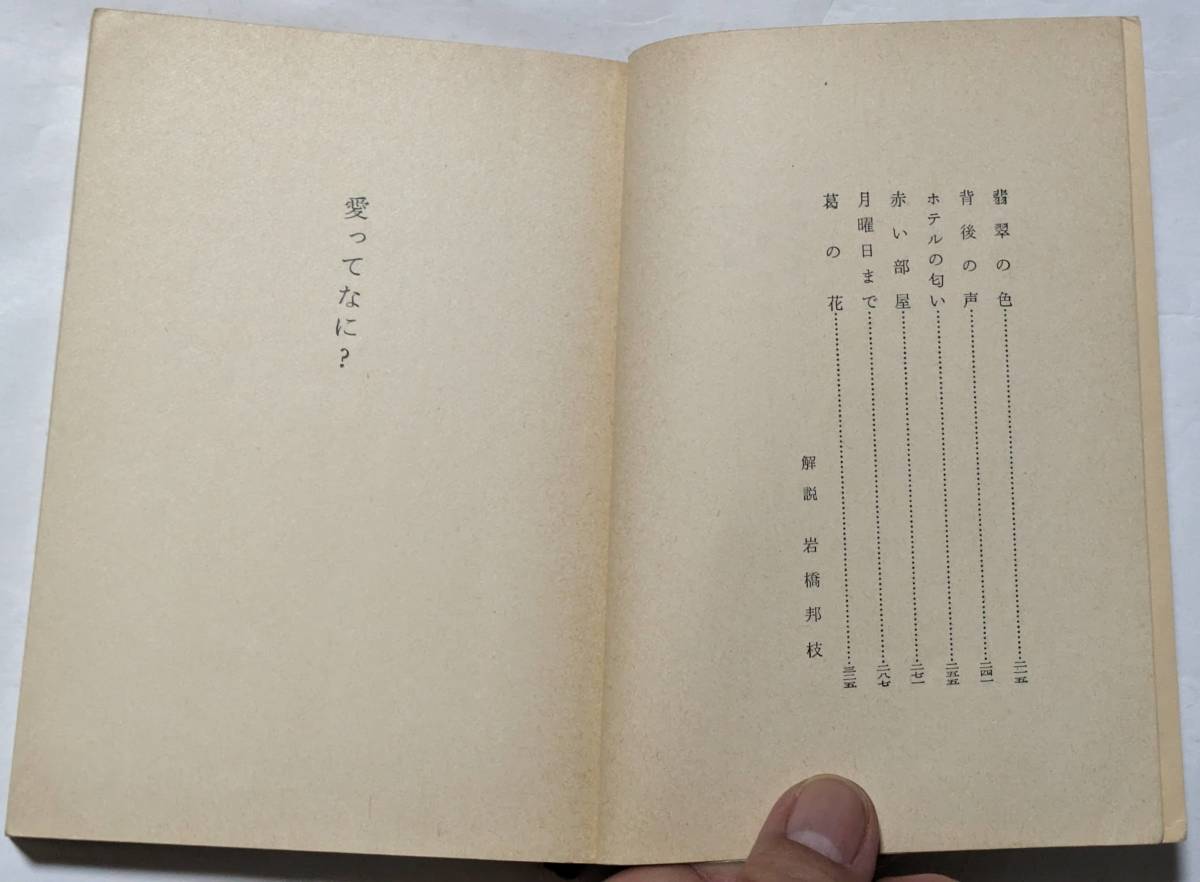 翡翠の色……二一五
背後の声……二四一
ホテルの匂い……二五五
赤い部屋……二七一
月曜日まで……二八七
葛の花……三二五
解説 岩橋邦枝
愛ってなに?